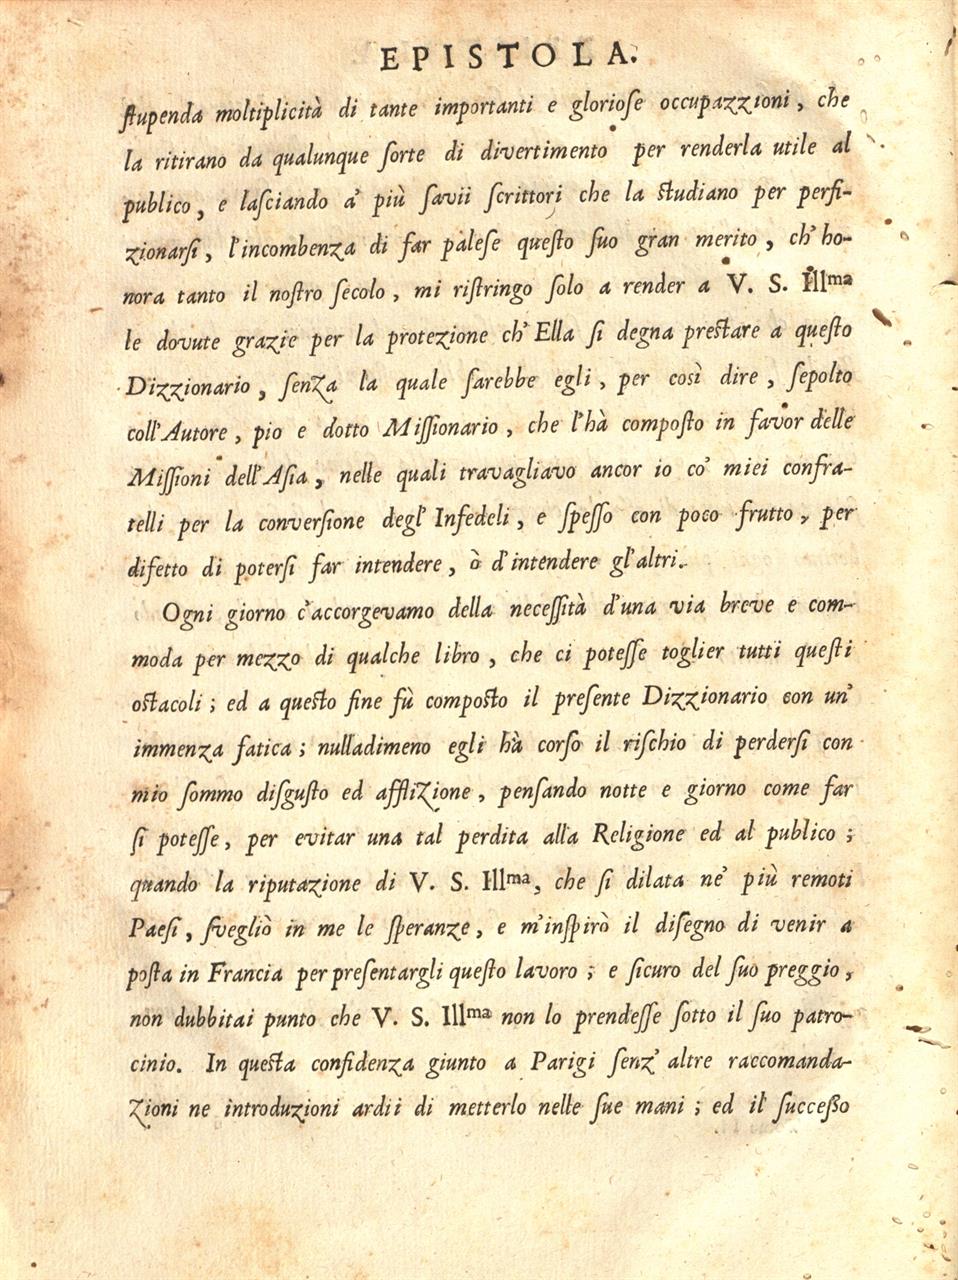 EPISTOLA.
ſtupenda moltiplicità di tante importanti e glorioſe occupazzioni, che
la ritirano da qualunque ſorte di divertimento per renderla utile al
publico, e laſciando a' più ſavii ſcrittori che la ſtudiano per perfi-
zionarſi, l'incombenza di far paleſe queſto ſuo gran merito, ch' ho-
nora tanto il noſtro ſecolo, mi riſtringo ſolo a render a V. S. Illma
le dovute grazie per la protezione ch' Ella ſi degna preſtare a queſto
Dizzionario, ſenza la quale ſarebbe egli, per così dire, ſepolto
coll' Autore, pio e dotto Miſſionario, che l'hà compoſto in favor delle
Miſſioni dell' Aſia, nelle quali travagliavo ancor io co' miei confra-
telli per la converſione degl' Infedeli, e ſpeſſo con poco frutto, per
difetto di poterſi far intendere, ò d'intendere gl'altri.
Ogni giorno c'accorgevamo della neceſſità d'una via breve e com-
moda per mezzo di qualche libro, che ci poteſſe toglier tutti queſti
oſtacoli; ed a queſto fine fù compoſto il preſente Dizzionario con un'
immenza fatica; nulladimeno egli hà corſo il riſchio di perderſi con
mio ſommo diſguſto ed afflizione, penſando notte e giorno come far
ſi poteſſe, per evitar una tal perdita alla Religione ed al publico;
quando la riputazione di V. S. Illma, che ſi dilata ne' più remoti
Paeſi, ſvegliò in me le ſperanze, e m'inſpirò il diſegno di venir a
poſta in Francia per preſentargli queſto lavoro; e ſicuro del ſuo preggio,
non dubbitai punto che V. S. Illma non lo prendeſſe ſotto il ſuo patro-
cinio. In queſta confidenza giunto a Parigi ſenz' altre raccomanda-
zioni ne introduzioni ardii di metterlo nelle ſue mani; ed il ſucceßo